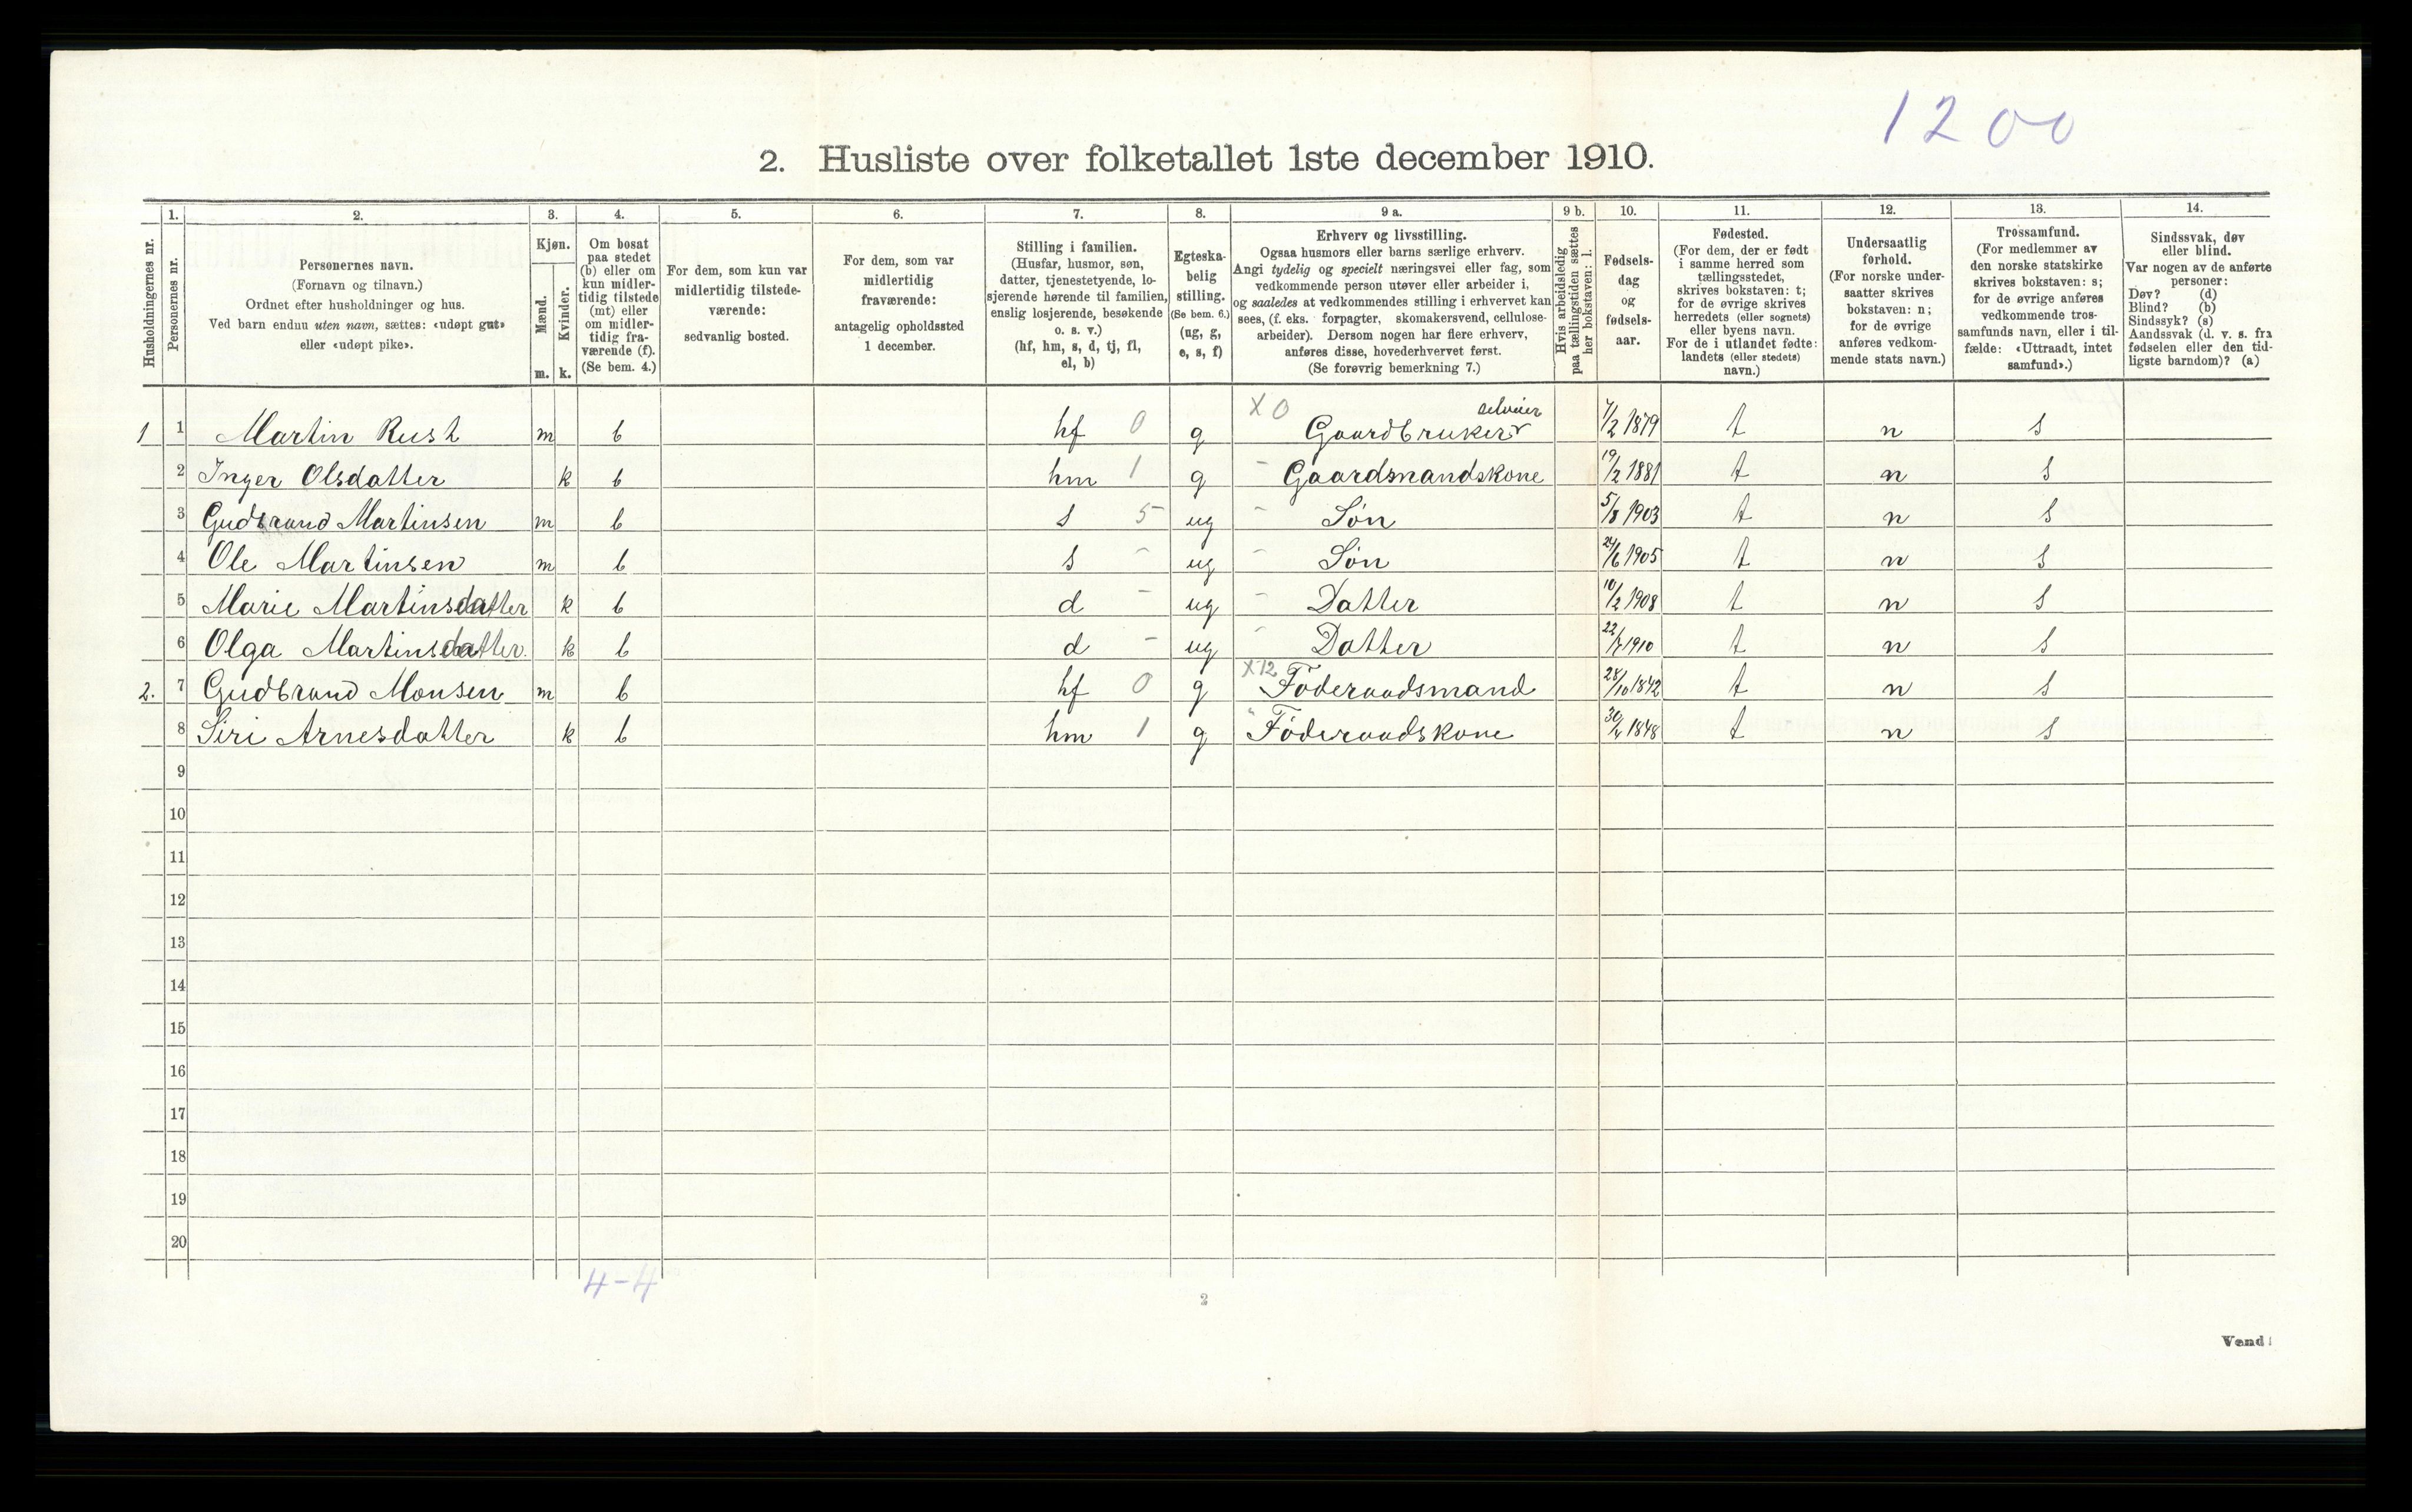 1200
2. Husliste over folketallet 1ste december 1910.
Husholdningernes nr.
1. Personernes nr.
2. Personernes navn.
(Fornavn og tilnavn.)
Ordnet efter husholdninger og hus.
Ved barn endnu uten navn, sættes: «udøpt gut»
eller «udøpt pike».
3. Kjøn.
Mænd. Kvinder.
m. k.
4. Om bosat
paa stedet
(b) eller om
kun midler-
tidig tilstede
(mt) eller
om midler-
tidig fra-
værende (f).
(Se bem. 4.)
5. For dem, som kun var
midlertidig tilstede-
værende:
sedvanlig bosted.
6. For dem, som var
midlertidig
fraværende:
antagelig opholdssted
1 december.
7. Stilling i familien.
(Husfar, husmor, søn,
datter, tjenestetyende, lo-
sjerende hørende til familien,
enslig losjerende, besøkende
o. s. v.)
(hf, hm, s, d, tj, fl,
el, b)
8. Egteska-
belig
stilling.
(Se bem. 6.)
(ug, g,
e, s, f)
9 a. Erhverv og livsstilling.
Ogsaa husmors eller barns særlige erhverv.
Angi tydelig og specielt næringsvei eller fag, som
vedkommende person utøver eller arbeider i,
og saaledes at vedkommendes stilling i erhvervet kan
sees, (f. eks. forpagter, skomakersvend, cellulose-
arbeider). Dersom nogen har flere erhverv,
anføres disse, hovederhvervet først.
(Se forøvrig bemerkning 7.)
9 b. Hvis arbeidsledig
paa tællingstiden sættes
her bokstaven: l.
10. Fødsels-
dag
og
fødsels-
aar.
11. Fødested.
(For dem, der er født
i samme herred som
tællingsstedet,
skrives bokstaven: t;
for de øvrige skrives
herredets (eller sognets)
eller byens navn.
For de i utlandet fødte:
landets (eller stedets)
navn.)
12. Undersaatlig
forhold.
(For norske under-
saatter skrives
bokstaven: n;
for de øvrige
anføres vedkom-
mende stats navn.)
13. Trossamfund.
(For medlemmer av
den norske statskirke
skrives bokstaven: s;
for de øvrige anføres
vedkommende tros-
samfunds navn, eller i til-
fælde: «Uttraadt, intet
samfund».)
14. Sindssvak, døv
eller blind.
Var nogen av de anførte
personer:
Døv? (d)
Blind? (b)
Sindssyk? (s)
Aandssvak (d. v. s. fra
fødselen eller den tid-
ligste barndom)? (a)
1 1 Martin Rust m b hf 0 g X 0 Gaardbruker selveier 7/2 1879 t n s
2 Inger Olsdatter k b hm 1 g - Gaardsmandskone 19/2 1881 t n s
3 Gudbrand Martinsen m b s 5 ug - Søn 5/8 1903 t n s
4 Ole Martinsen m b s - ug - Søn 24/6 1905 t n s
5 Marie Martinsdatter k b d - ug - Datter 10/2 1908 t n s
6 Olga Martinsdatter k b d - ug - Datter 22/7 1910 t n s
2. 7 Gudbrand Monsen m b hf 0 g X 12 Föderaadsmand 28/10 1842 t n s
8 Siri Arnesdatter k b hm 1 g " Föderaadskone 30/4 1848 t n s
9
10
11
12
13
14
15
16
17
18
19
20
4-4
2
Vend!